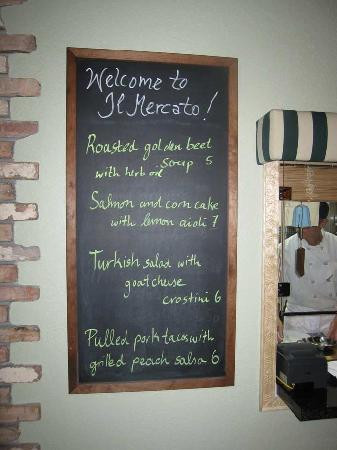 Welcome to
Il Mercato!
Roasted golden beet
soup 5
with herb oil
Salmon and corn cake
with lemon aioli 7
Turkish salad with
goat cheese
crostini 6
Pulled pork tacos with
grilled peach salsa 6